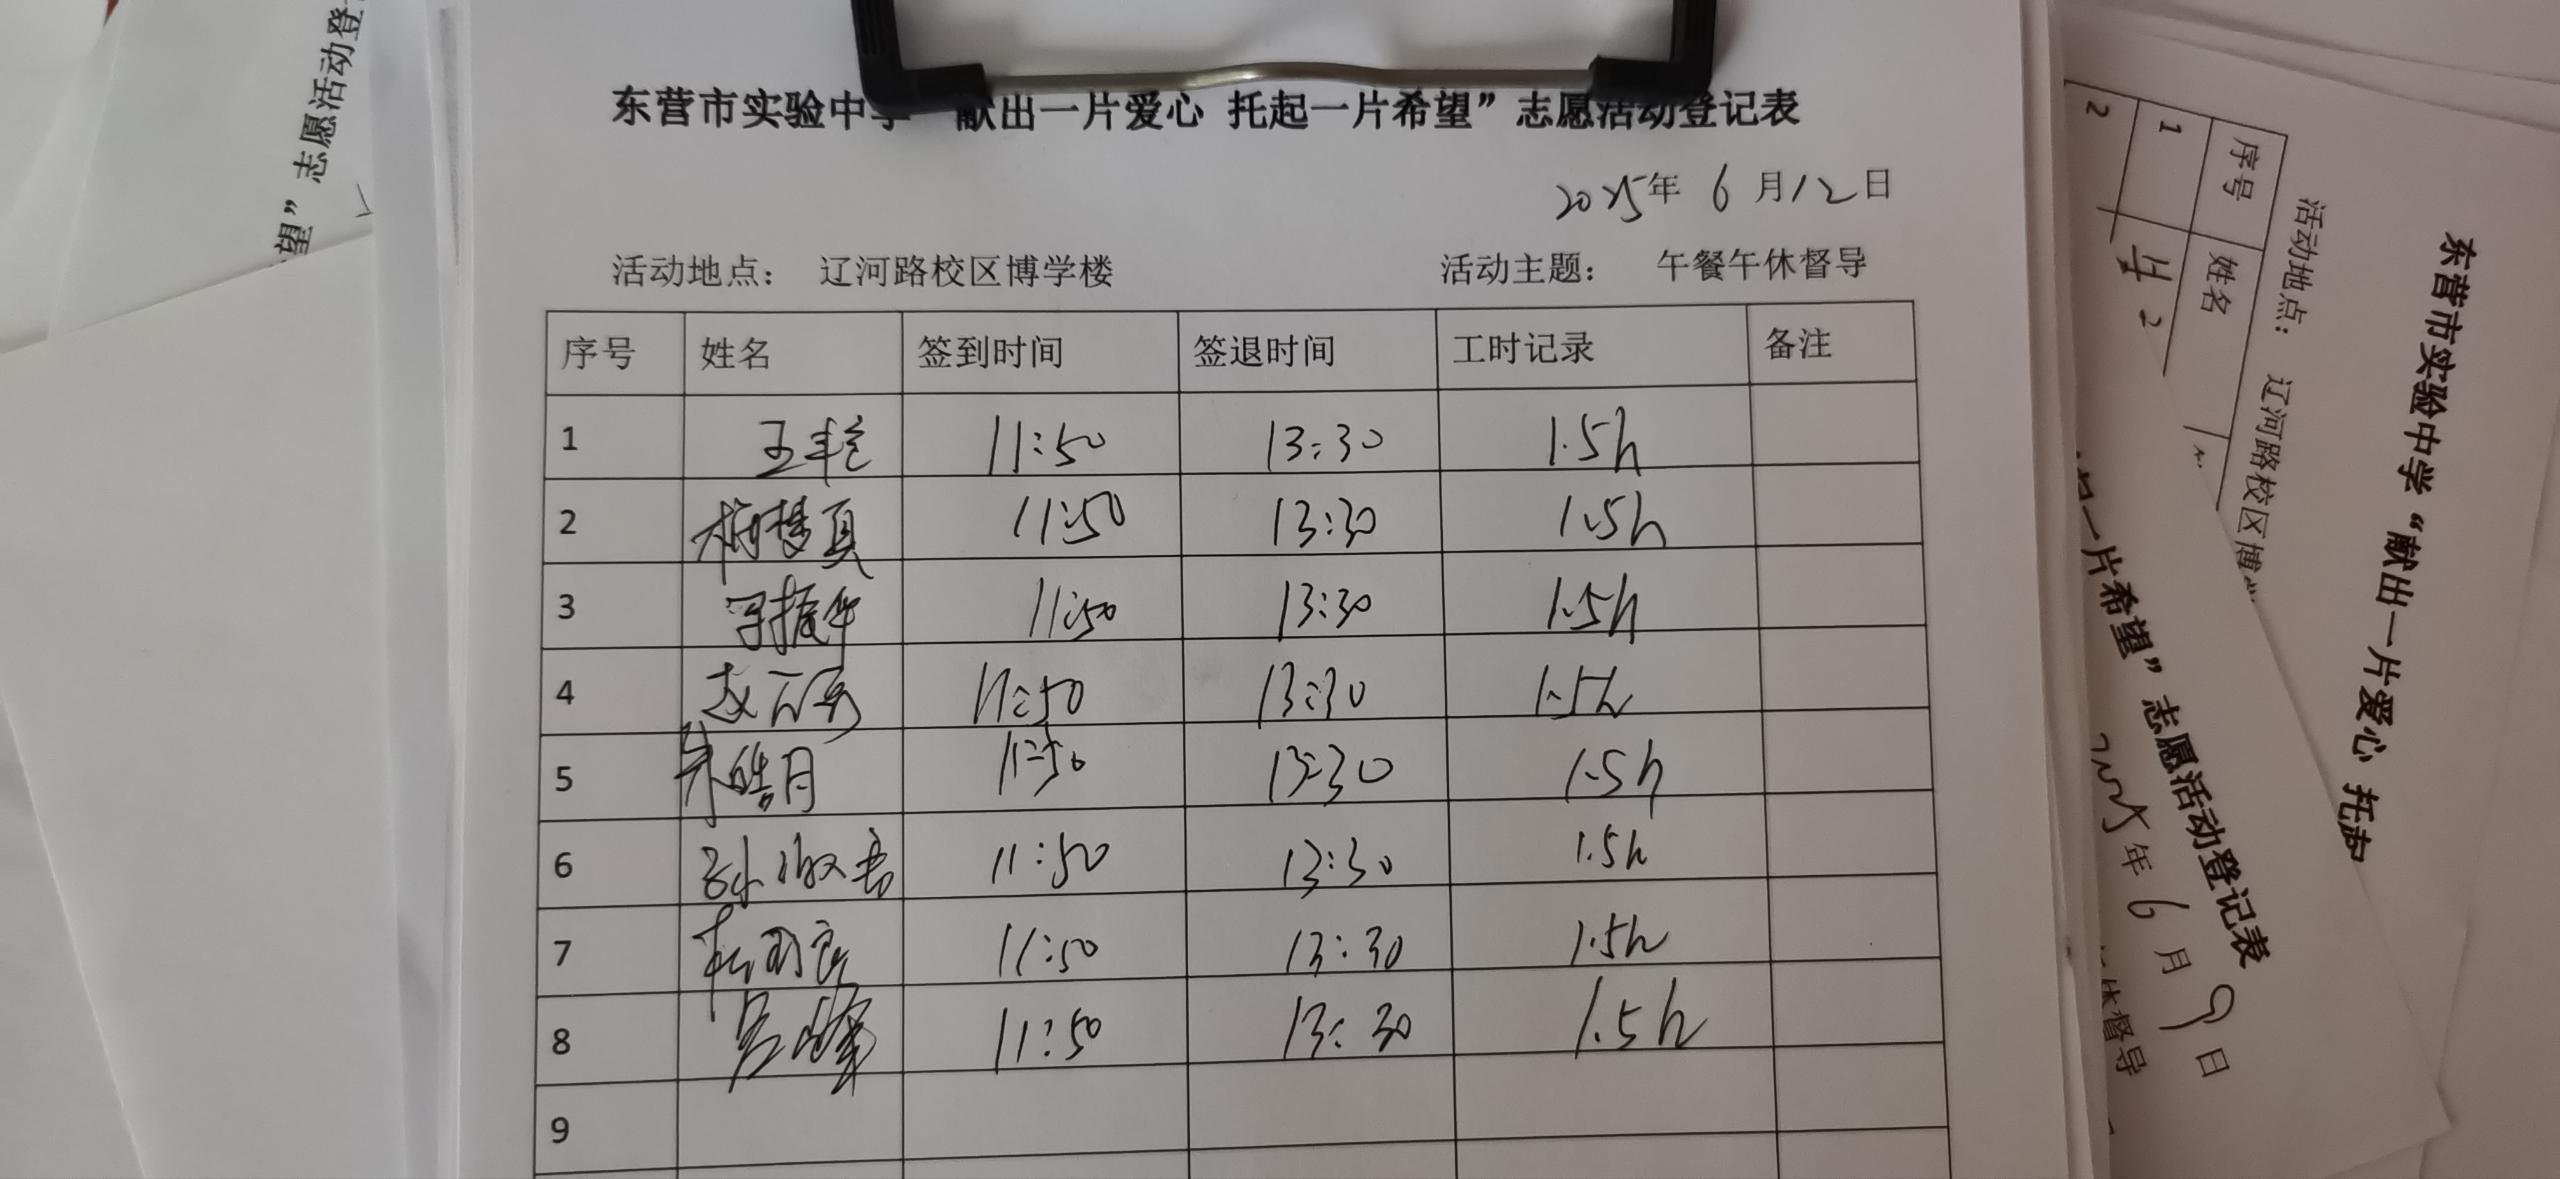 东营市实验中学“献出一片爱心 托起一片希望”志愿活动登记表
2025年 6 月12日
活动地点： 辽河路校区博学楼 活动主题： 午餐午休督导
序号 姓名 签到时间 签退时间 工时记录 备注
1 11:50 13:30 1.5h
2 11:50 13:30 1.5h
3 11:50 13:30 1.5h
4 11:50 13:30 1.5h
5 朱皓月 11:50 13:30 1.5h
6 11:50 13:30 1.5h
7 11:50 13:30 1.5h
8 11:50 13:30 1.5h
9
望”志愿活动登
东营市实验中学“献出一片爱心 托起
活动地点： 辽河路校区博
序号 姓名
1
2
一片希望”志愿活动登记表
2025年 6 月 9 日
休督导